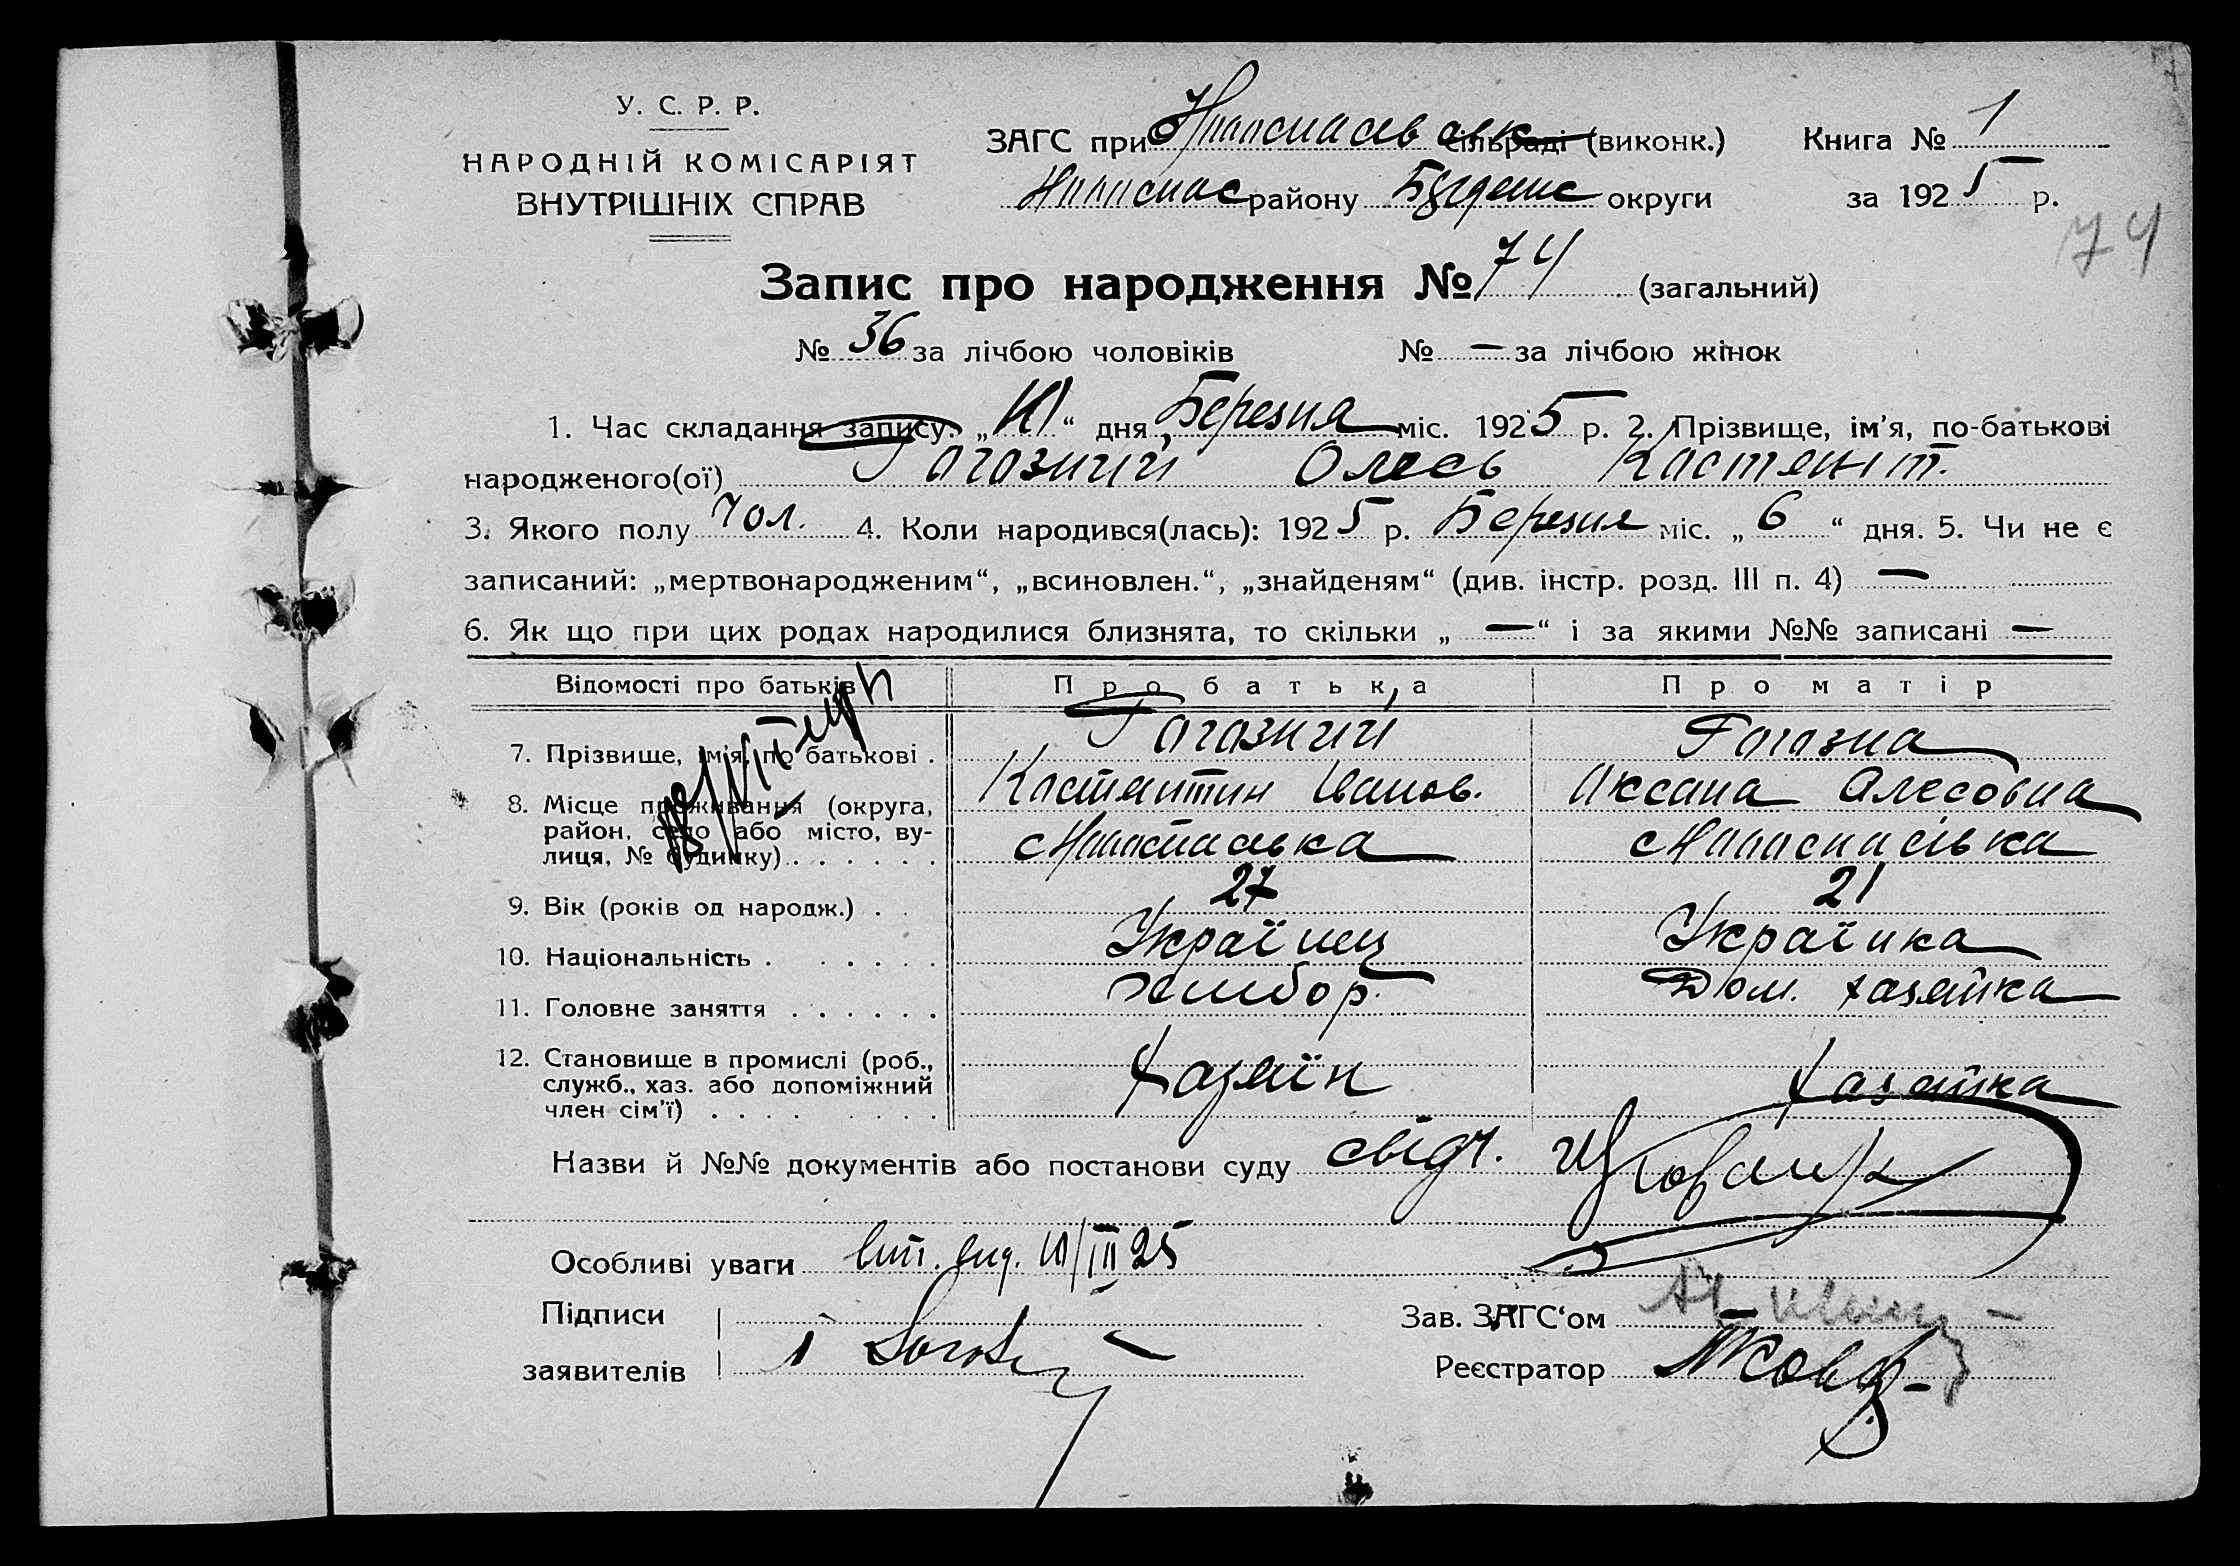 У. С. Р. Р.
НАРОДНІЙ КОМІСАРІЯТ
ВНУТРІШНІХ СПРАВ
ЗАГС при сільраді (виконк.) Книга № 1
району округи за 1925 р.
74
Запис про народження № 74 (загальний)
№ 36 за лічбою чоловіків № — за лічбою жінок
1. Час складання запису: „10“ дня Березня міс. 1925 р. 2. Прізвище, ім'я, по-батькові
народженого(ої) Гагозний Олесь Костянт.
3. Якого полу Чол. 4. Коли народився(лась): 1925 р. Березня міс. „6“ дня. 5. Чи не є
записаний: „мертвонародженим“, „всиновлен.“, „знайденям“ (див. інстр. розд. III п. 4) —
6. Як що при цих родах народилися близнята, то скільки „—“ і за якими №№ записані —
Відомості про батьків Про батька Про матір
7. Прізвище, ім'я, по батькові .
Костянтин Іванов. Оксана Олесовна
8. Місце проживання (округа,
район, село або місто, ву-
лиця, № будинку) . . . . . .
9. Вік (років од народж.) . . 27 21
10. Національність . . . . . . Українец Українка
11. Головне заняття . . . . . . Хлібор. Дом. хазяйка
12. Становище в промислі (роб.,
служб., хаз. або допоміжний
член сім'ї) . . . . . . . . Хазяїн Хазяйка
Назви й №№ документів або постанови суду свідч.
Особливі уваги вит. вид. 10/III 25
Підписи
заявителів
Зав. ЗАГС'ом
Реєстратор